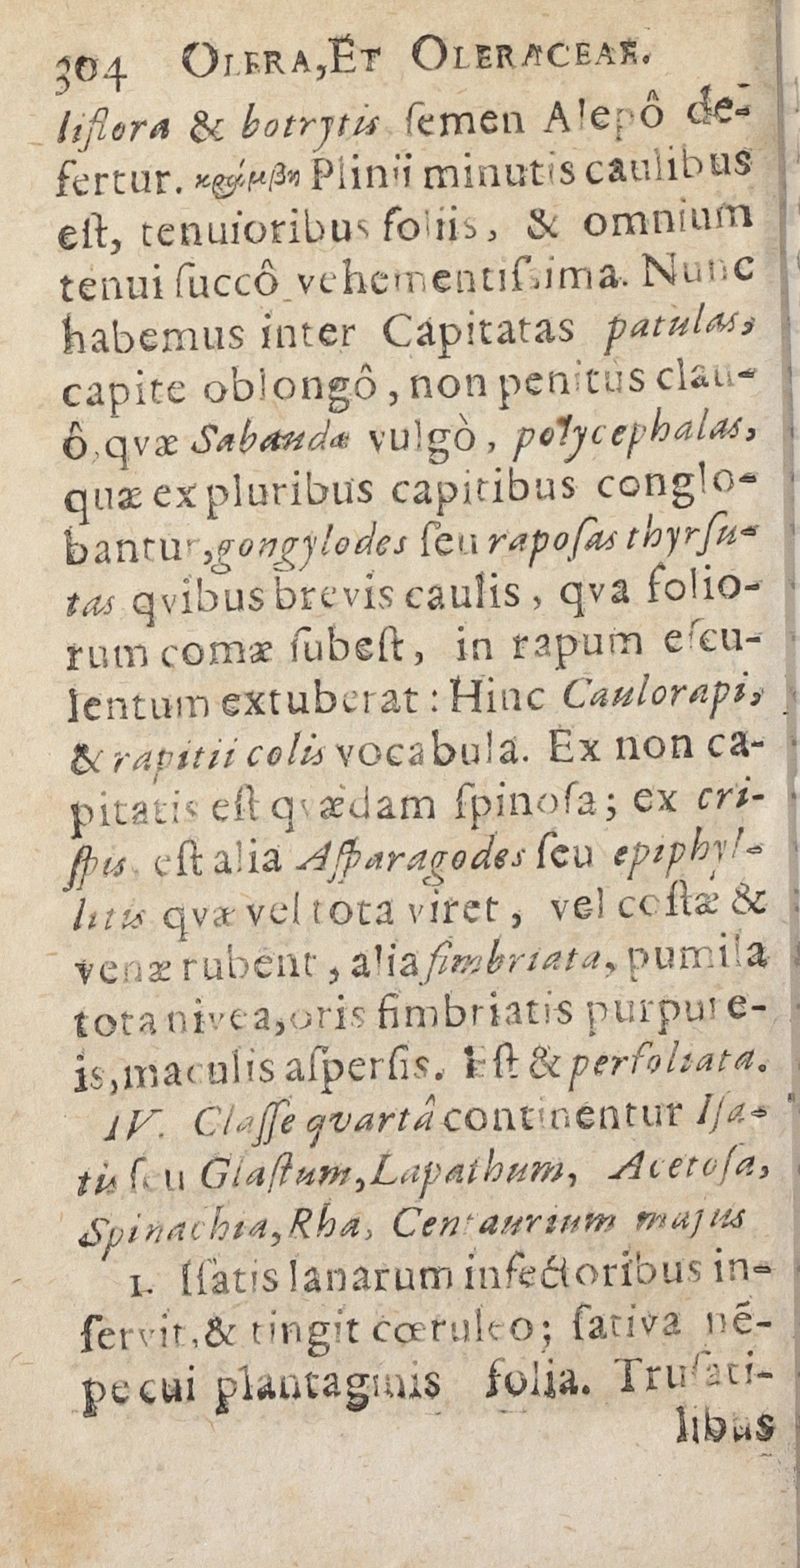 304 OLERA, ET OLERACEAE.
liflora & botrytis ſemen Alepô de-
fertur. κράμβη Plinii minutis caulibus
eſt, tenuioribus foliis, & omnium
tenui ſuccô vehementiſsima. Nunc
habemus inter Capitatas patulas,
capite oblongô, non penitùs clau-
ô, qvæ Sabaudæ vulgò, polycephalas,
quæ ex pluribus capitibus conglo-
bantur, gongylodes ſeu rapoſas thyrſu-
tas qvibus brevis caulis, qva folio-
rum comæ ſubeſt, in rapum eſcu-
lentum extuberat: Hinc Caulorapi,
& rapitii colis vocabula. Ex non ca-
pitatis eſt qvædam ſpinoſa; ex cri-
ſpis eſt alia Aſparagodes ſeu epiphyl-
litis qvæ vel tota viret, vel coſtæ &
venæ rubent, alia fimbriata, pumila
tota nivea, oris fimbriatis purpure-
is, maculis aſperſis. Eſt & perfoliata.
IV. Claſſe qvartâ continentur Iſa-
tis ſeu Glaſtum, Lapathum, Acetoſa,
Spinachia, Rha, Centaurium majus
1. Iſatis lanarum infectoribus in-
ſervit, & tingit cœruleo; ſativa nē-
pe cui plantaginis folia. Truſati-
libus